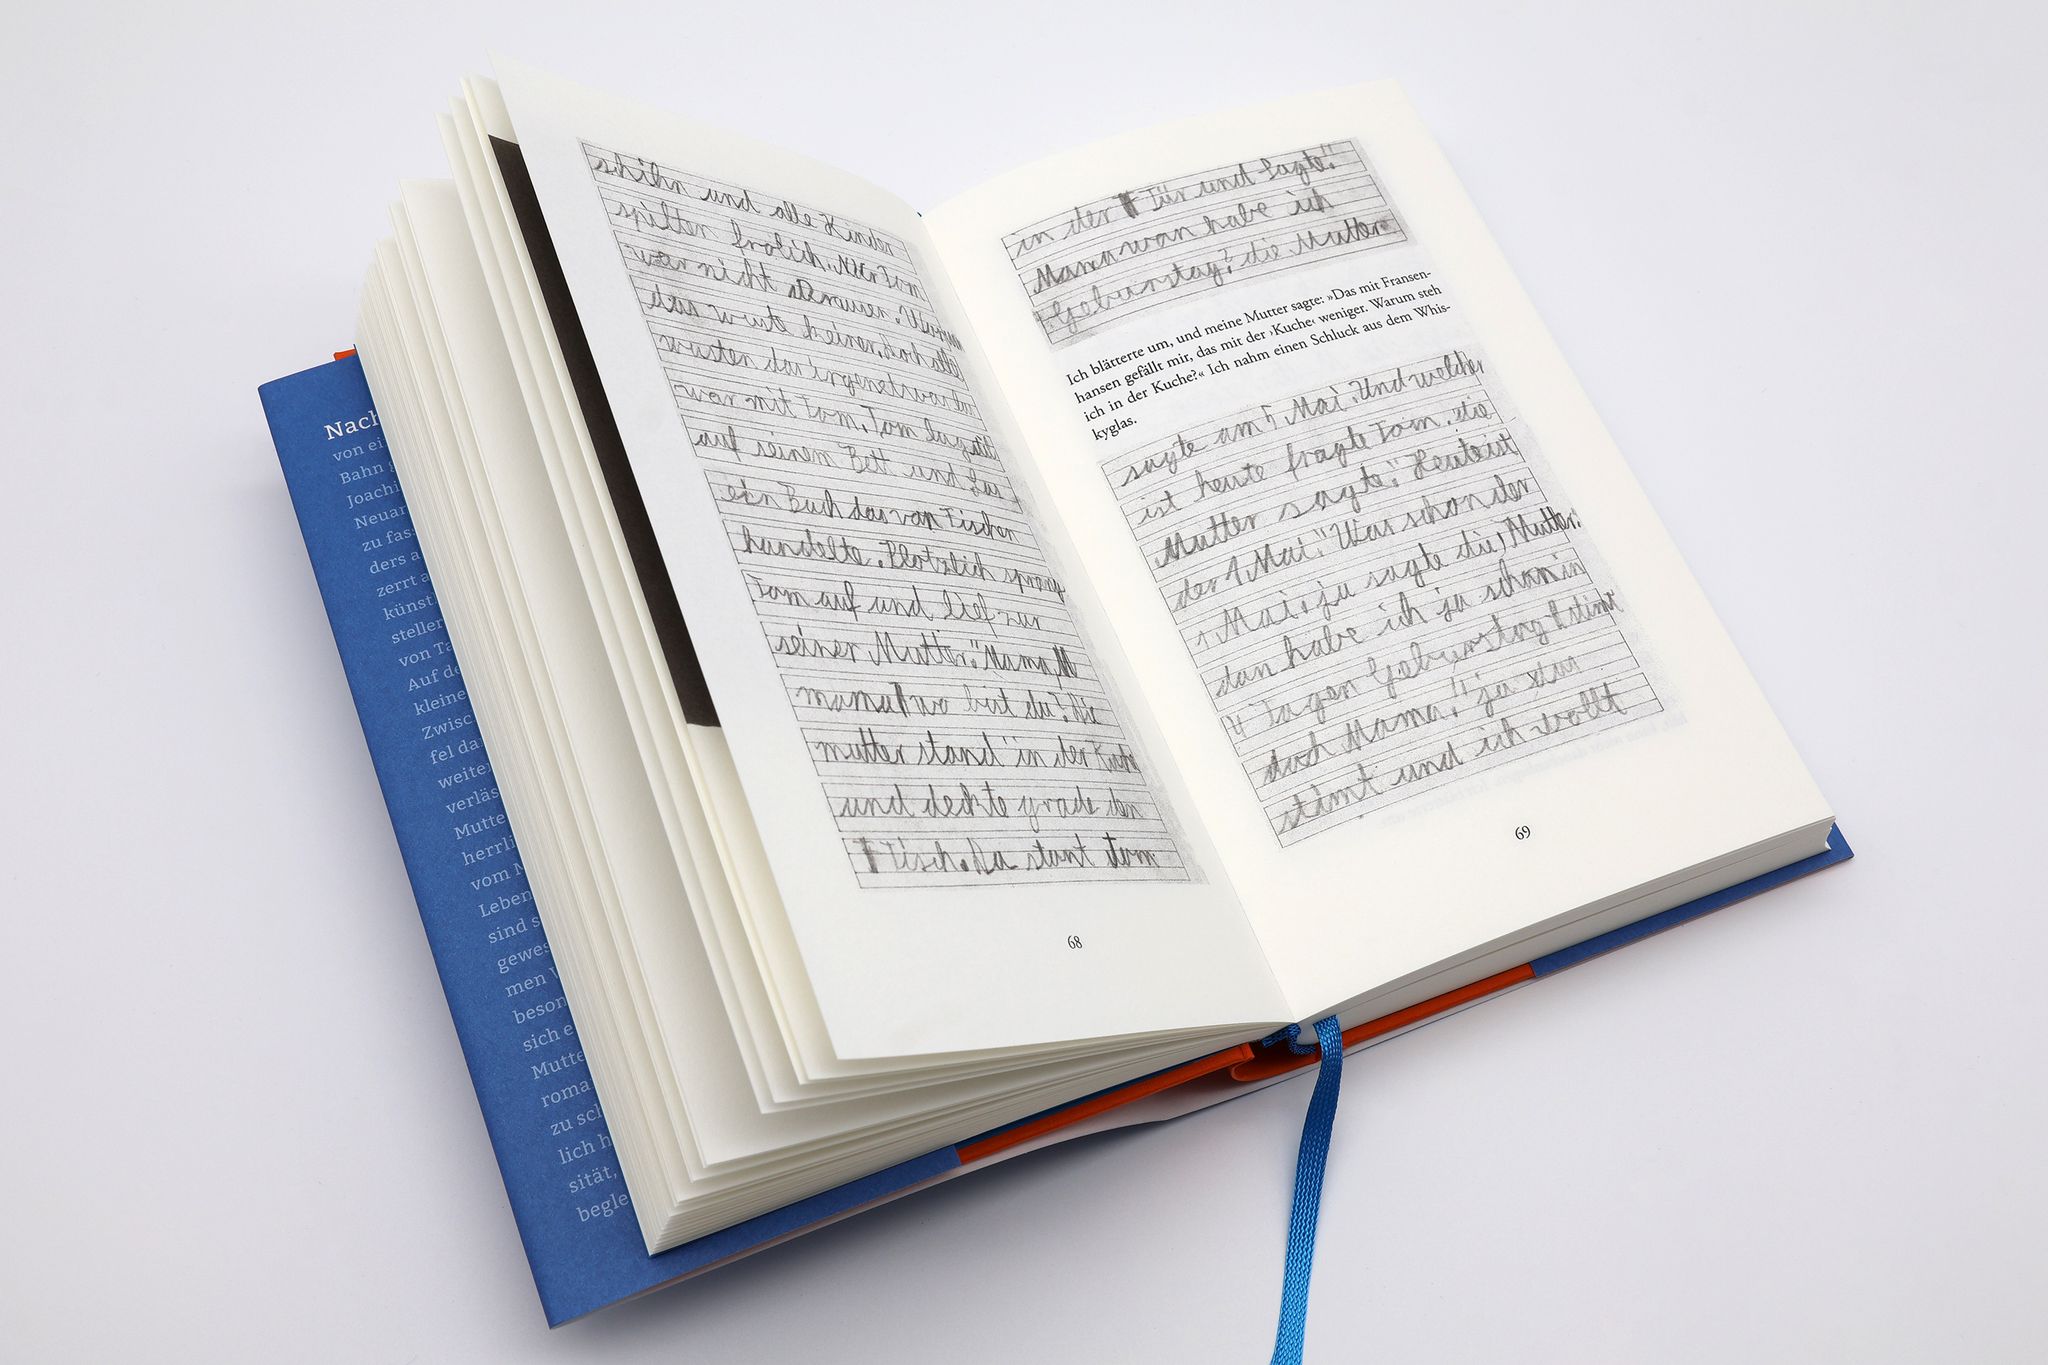 Nach
von ei
Bahn g
Joachi
Neuar
zu fas
ders a
zerrt a
künst
steller
von Ta
Auf de
kleine
Zwisc
fel da
weite
verläs
Mutte
herrli
vom M
Leben
sind s
gewes
men V
beson
sich e
Mutte
roma
zu sch
lich h
sität,
begle
schihn und alle Kinder
spilten frölich. Nur Tom
war nicht drauen.
das wuste keiner, doch alle
wusten das irgenetwas
war mit Tom. Tom lag
auf seinem Bett und las
ein Buch das van Fischen
handelte. Plötzlich sprang
Tom auf und lief zur
seiner Mutter." Mama,
mama wo bist du? Die
mutter stand in der Kuche
und deckte grade den
Tisch. Da stant Tom
68
in der Tür und sagte:"
Mama wan habe ich
Geburstag? die Mutter
Ich blätterte um, und meine Mutter sagte: »Das mit Fransen-
hansen gefällt mir, das mit der ›Kuche‹ weniger. Warum steh
ich in der Kuche?« Ich nahm einen Schluck aus dem Whis-
kyglas.
sagte am 5 Mai. Und welcher
ist heute fragte Tom. die
Mutter sagte:" Heute ist
der 1 Mai." Was schon der
1 Mai, ja sagte die Mutter."
dan habe ich ja schon in
4 Tagen Geburstag stimt
doch Mama," ja das
stimt und ich wollt
69